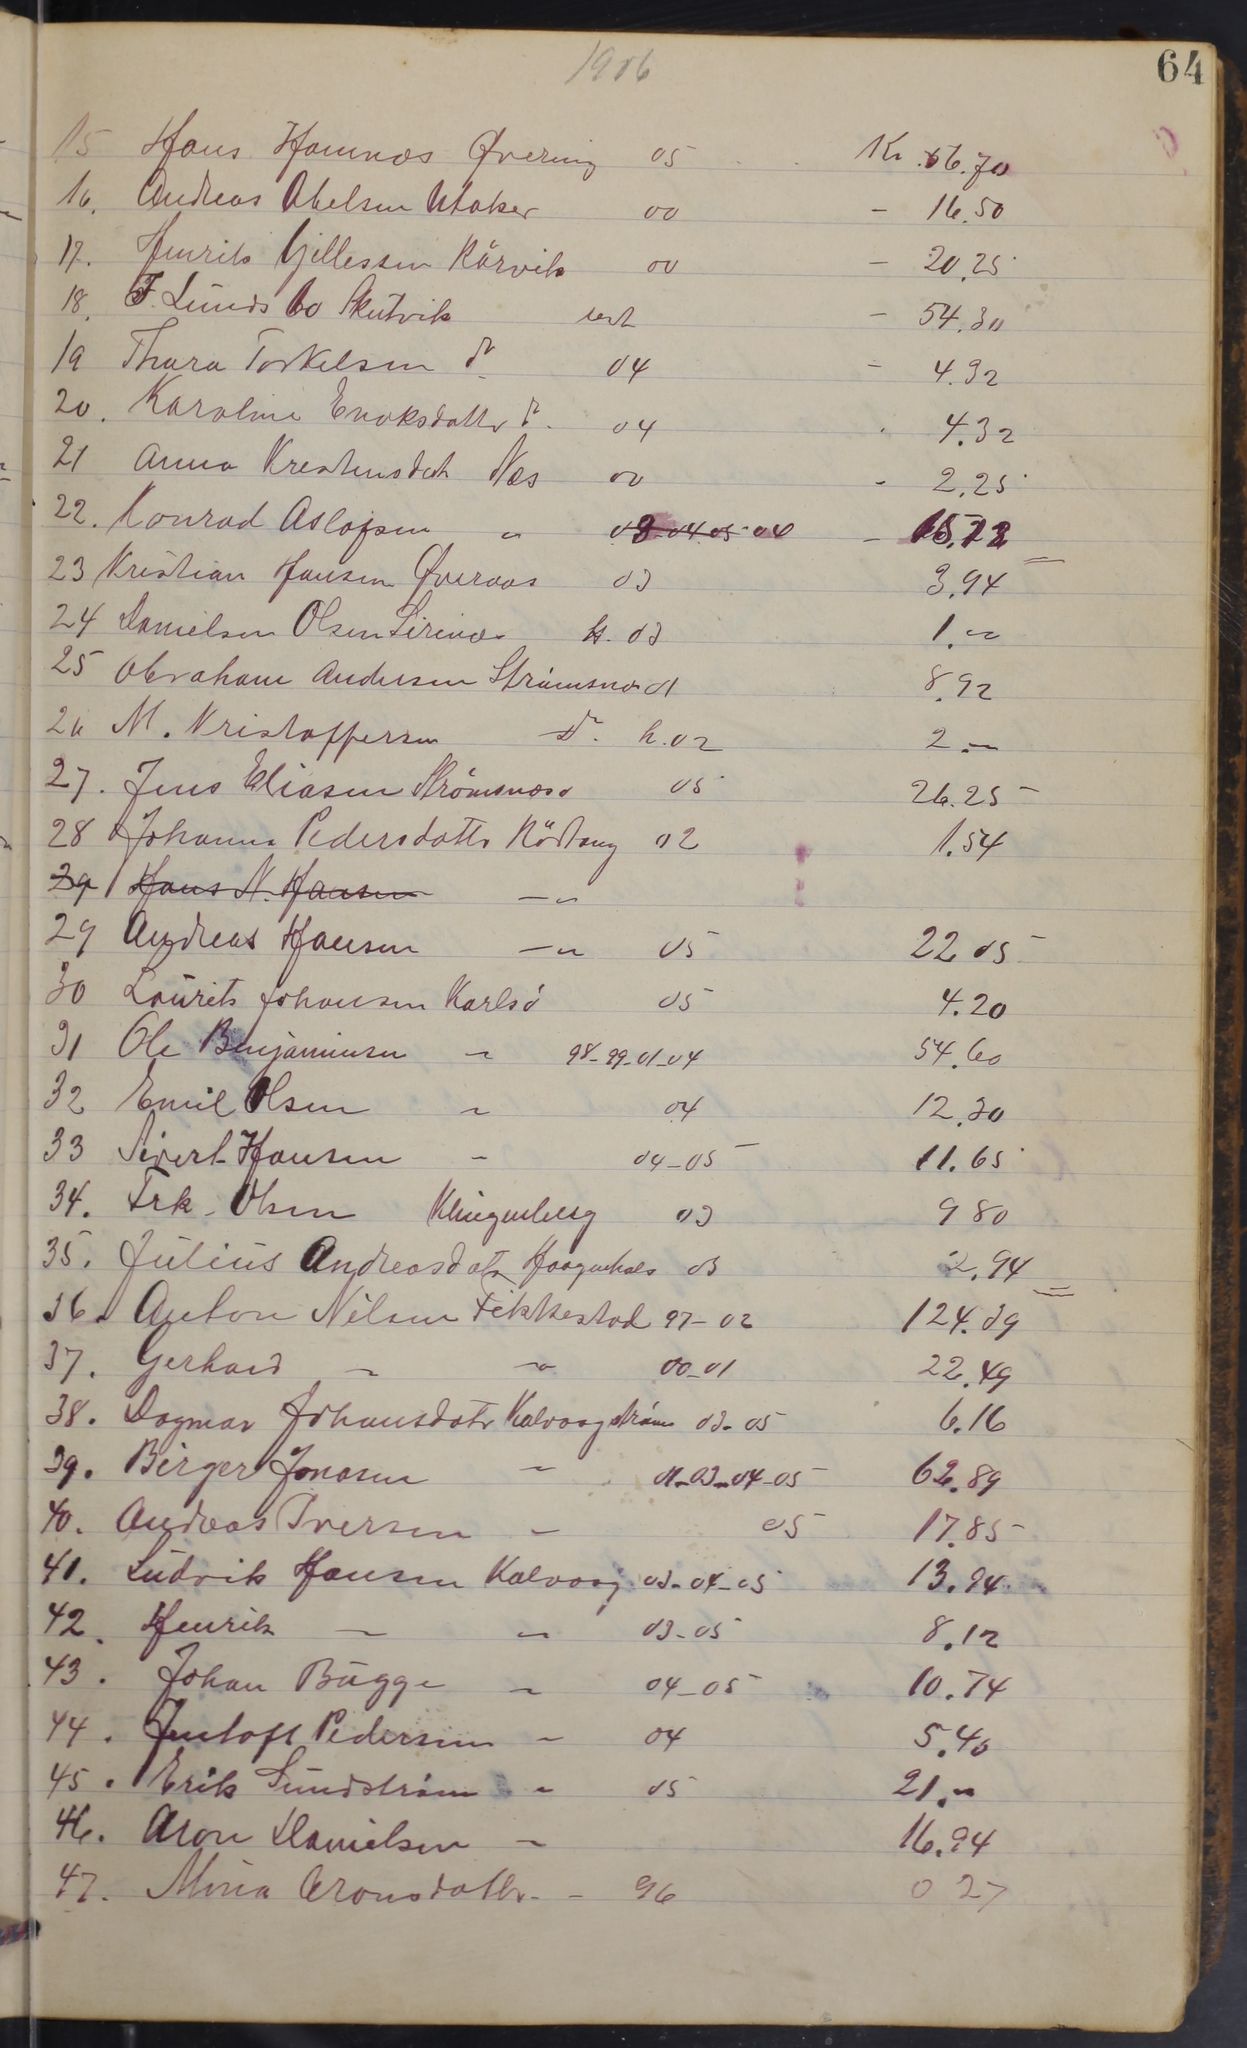 1906
64
15 Hans Hamnæs Øvering 05 Kr. 56.70
16. Andreas Abelsen Utaker 00 - 16.50
17. Henrik Gillessen Rörvik 00 - 20.25
18. F. Lunds bo Skutvik rest - 54.30
19 Thara Torkelsen do 04 - 4.32
20. Karoline Enoksdatter do 04 4.32
21 Anna Krestensdatt Næs 00 - 2.25
22. Konrad Aslaksen " 03-04-05-04 - 15.72
23 Kristian Hansen Øveraas 03 3.94
24 Danielsen Olsen h. 03 1.-
25 Abraham Andersen Strømsnæs 01 8.92
26 M. Kristoffersen do. h. 02 2.-
27. Jens Eliasen Strømsnæs 05 26.25
28 Johanna Pedersdatter Rötang 02 1.54
29 Hans N. Hansen - "
29 Andreas Hansen - " 05 22 05
30 Laurits Johansen Karlsö 05 4.20
31 Ole Benjaminsen " 98-99-01-04 54.60
32 Emil Olsen " 04 12.30
33 Sivert Hansen - 04-05 11.65
34. Frk. Olsen Klingenberg 03 9 80
35. Julius Andreasdatr Haagenhals 03 2.94
36. Anton Nilsen Fikkestad 97-02 124.39
37. Gerhard - " 00-01 22.49
38. Dagmar Johansdatr Kalvaagström 03-05 6.16
39. Birger Jonasen - 01-03-04-05 62.89
40. Andreas Iversen - 05 17.85
41. Ludvik Hansen Kalvaag 03-04-05 13.94
42. Henrik - " 03-05 8.12
43. Johan Bugge " 04-05 10.74
44. Jentoft Pedersen - 04 5.40
45. Erik Sundström " 05 21.-
46. Aron Danielsen - 16.94
47. Mina Aronsdatter - 96 0 27